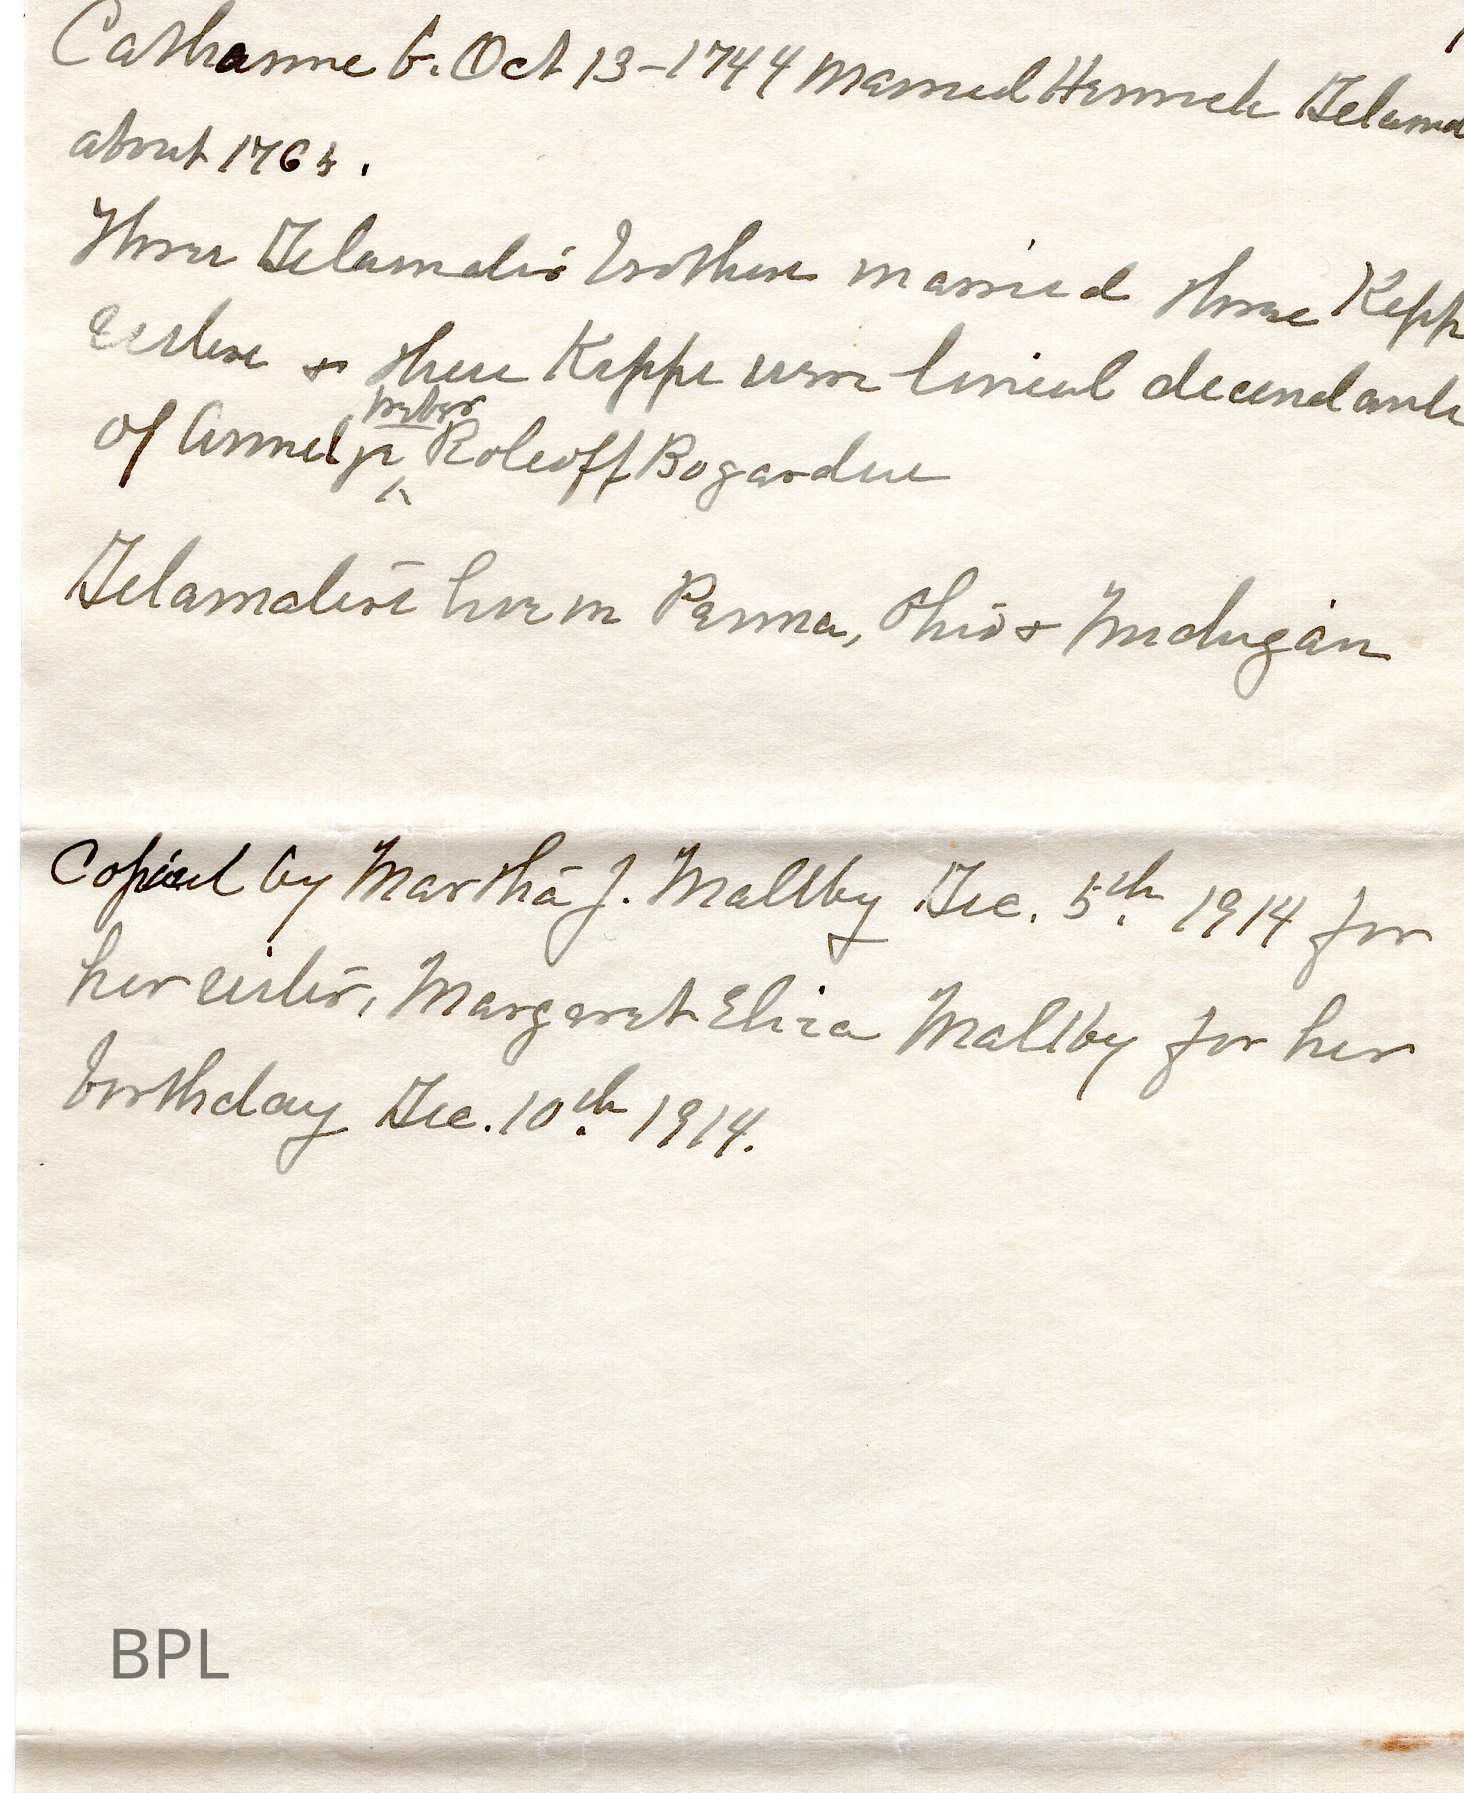 Catharine b. Oct 13-1744 married Hennrich Delama
about 1765.
Three Delamater brothers married three Kepp
sisters & these Kipps were lineal decendants
of Annetje Weber Roleoff Bogardus
Delamaters live in Parma, Ohio & Michigan
Copied by Martha J. Maltby Dec. 5th. 1914 for
her sister, Margaret Eliza Maltby for her
birthday Dec. 10th. 1914.
BPL